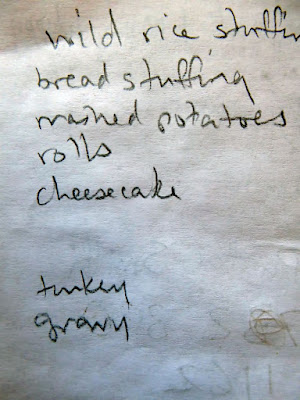 wild rice stuffin
bread stuffing
mashed potatoes
rolls
cheesecake
turkey
gravy